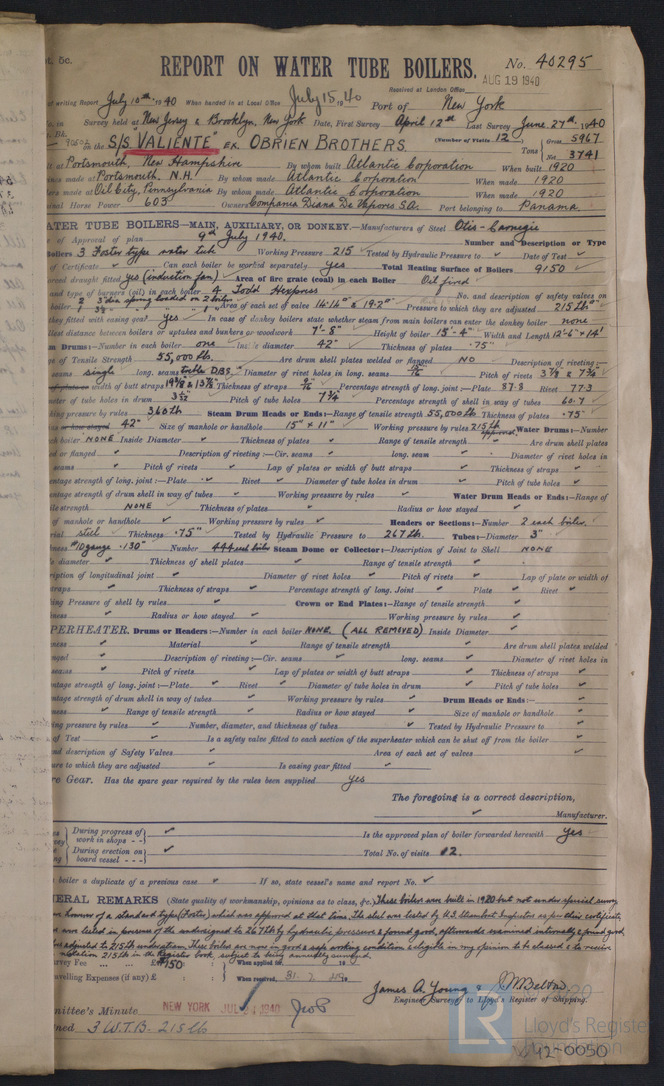 pt. 5c.
REPORT ON WATER TUBE BOILERS.
No. 40295
AUG 19 1940
Received at London Office
of writing Report July 10th 1940 When handed in at Local Office July 15 1940 Port of New York
Survey held at New Jersey & Brooklyn, New York Date, First Survey April 12th Last Survey June 27th 1940
(Number of Visits 12)
on the S/S "VALIENTE" ex OBRIEN BROTHERS. Tons Gross 5967
Net 3741
at Portsmouth, New Hampshire By whom built Atlantic Corporation When built 1920
made at Portsmouth, N.H. By whom made Atlantic Corporation When made 1920
made at Oil City, Pennsylvania By whom made Atlantic Corporation When made 1920
Horse Power 603 Owners Compania Diana De Vapores S.A. Port belonging to Panama.
WATER TUBE BOILERS—MAIN, AUXILIARY, OR DONKEY.—Manufacturers of Steel Otis-Carnegie
of Approval of plan 9th July 1940. Number and Description or Type
Boilers 3 Foster type water tube Working Pressure 215 Tested by Hydraulic Pressure to Date of Test
of Certificate Can each boiler be worked separately yes Total Heating Surface of Boilers 9150
forced draught fitted yes (induction fan) Area of fire grate (coal) in each Boiler Oil fired
and type of burners (oil) in each boiler 4 Todd Hexpress No. and description of safety valves on
boiler 2 3" dia spring loaded on 2 boilers Area of each set of valves 14.14" & 19.2" Pressure to which they are adjusted 215 lbs
they fitted with easing gear yes In case of donkey boilers state whether steam from main boilers can enter the donkey boiler none
distance between boilers or uptakes and bunkers or woodwork 7'-8" Height of boiler 15'-4" Width and Length 12'-6" x 14'
Drums:—Number in each boiler one Inside diameter 42" Thickness of plates .75"
of Tensile Strength 55,000 lb. Are drum shell plates welded or flanged NO Description of riveting:—
seams single long. seams treble D.B.S. Diameter of rivet holes in long. seams Pitch of rivets 3 7/8 & 7 3/4"
width of butt straps Thickness of straps 9/16 Percentage strength of long. joint:—Plate 87.8 Rivet 77.3
of tube holes in drum 3 1/32" Pitch of tube holes 7 3/4 Percentage strength of shell in way of tubes 60.7
pressure by rules 360 lb Steam Drum Heads or Ends:—Range of tensile strength 55,000 lb Thickness of plates .75"
or how stayed 42" Size of manhole or handhole 15" x 11" Working pressure by rules 215 lb approved. Water Drums:—Number
each boiler NONE Inside Diameter Thickness of plates Range of tensile strength Are drum shell plates
or flanged Description of riveting:—Cir. seams long. seam Diameter of rivet holes in
seams Pitch of rivets Lap of plates or width of butt straps Thickness of straps
strength of long. joint:—Plate Rivet Diameter of tube holes in drum Pitch of tube holes
strength of drum shell in way of tubes Working pressure by rules Water Drum Heads or Ends:—Range of
strength NONE Thickness of plates Radius or how stayed
of manhole or handhole Working pressure by rules Headers or Sections:—Number 2 each boiler.
steel Thickness .75" Tested by Hydraulic Pressure to 267 lb. Tubes:—Diameter 3"
#10 gauge .130" Number 444 each boiler Steam Dome or Collector:—Description of Joint to Shell NONE
diameter Thickness of shell plates Range of tensile strength
of longitudinal joint Diameter of rivet holes Pitch of rivets Lap of plate or width of
straps Thickness of straps Percentage strength of long. Joint Plate Rivet
Pressure of shell by rules Crown or End Plates:—Range of tensile strength
Radius or how stayed Working pressure by rules
SUPERHEATER. Drums or Headers:—Number in each boiler NONE. (ALL REMOVED) Inside Diameter
Material Range of tensile strength Are drum shell plates welded
Description of riveting:—Cir. seams long. seams Diameter of rivet holes in
Pitch of rivets Lap of plates or width of butt straps Thickness of straps
strength of long. joint:—Plate Rivet Diameter of tube holes in drum Pitch of tube holes
strength of drum shell in way of tubes Working pressure by rules Drum Heads or Ends:—
Range of tensile strength Radius or how stayed Size of manhole or handhole
pressure by rules Number, diameter, and thickness of tubes Tested by Hydraulic Pressure to
of Test Is a safety valve fitted to each section of the superheater which can be shut off from the boiler
and description of Safety Valves Area of each set of valves
to which they are adjusted Is easing gear fitted
Gear. Has the spare gear required by the rules been supplied yes
The foregoing is a correct description,
Manufacturer.
During progress of work in shops - - Is the approved plan of boiler forwarded herewith yes
During erection on board vessel - - - Total No. of visits 12.
boiler a duplicate of a previous case If so, state vessel's name and report No.
GENERAL REMARKS (State quality of workmanship, opinions as to class, &c.) These boilers were built in 1920 but not under special survey
however of a standard type (Foster) which was approved at that time. The steel was tested by U.S. Steamboat Inspector as per their certificate
were tested in presence of the undersigned to 267 lb by hydraulic pressure & found good, afterwards examined internally & found good,
adjusted to 215 lb under steam. These boilers are now in good & safe working condition & eligible in my opinion to be classed & to receive
notation 215 lb in the Register book subject to being annually surveyed.
Survey Fee $150 When applied for 19
Travelling Expenses (if any) £ When received, 31. 7 1940
James A. Young &
Engineer Surveyor to Lloyd's Register of Shipping.
Committee's Minute NEW YORK JUL 24 1940
3 W.T.B. 215 lb
LR
Lloyd's Register
Foundation
W42-0050